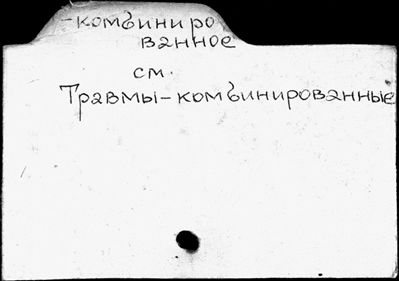 -комбиниро
ванное
см.
Травмы-комбинированные